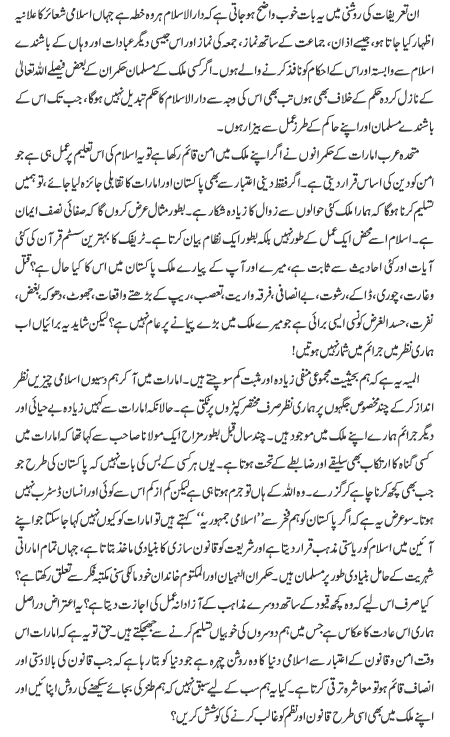 ان تعریفات کی روشنی میں یہ بات خوب واضح ہو جاتی ہے کہ دارالاسلام ہر وہ خطہ ہے جہاں اسلامی شعائر کا علانیہ
اظہار کیا جاتا ہو، جیسے اذان، جماعت کے ساتھ نماز، جمعہ کی نماز اور اس جیسی دیگر عبادات اور وہاں کے باشندے
اسلام سے وابستہ اور اس کے احکام کو نافذ کرنے والے ہوں۔ اگر کسی ملک کے مسلمان حکمران کے بعض فیصلے اللہ تعالیٰ
کے نازل کردہ حکم کے خلاف بھی ہوں تب بھی اس کی وجہ سے دارالاسلام کا حکم تبدیل نہیں ہوگا، جب تک اس کے
باشندے مسلمان اور اپنے حاکم کے طرز عمل سے بیزار ہوں۔
متحدہ عرب امارات کے حکمرانوں نے اگر اپنے ملک میں امن قائم رکھا ہے تو یہ اسلام کی اس تعلیم پر عمل ہی ہے جو
امن کو دین کی اساس قرار دیتی ہے۔ اگر فقط دینی اعتبار سے بھی پاکستان اور امارات کا تقابلی جائزہ لیا جائے، تو ہمیں
تسلیم کرنا ہوگا کہ ہمارا ملک کئی حوالوں سے زوال کا زیادہ شکار ہے۔ بطور مثال عرض کروں گا کہ صفائی نصف ایمان
ہے۔ اسلام اسے محض ایک عمل کے طور نہیں بلکہ بطور ایک نظام بیان کرتا ہے۔ ٹریفک کا بہترین سسٹم قرآن کی کئی
آیات اور کئی احادیث سے ثابت ہے، میرے اور آپ کے پیارے ملک پاکستان میں اس کا کیا حال ہے؟ قتل
وغارت، چوری، ڈاکے، رشوت، بے انصافی، فرقہ واریت، تعصب، ریپ کے بڑھتے واقعات، جھوٹ، دھوکہ، بغض،
نفرت، حسد الغرض کونسی ایسی برائی ہے جو میرے ملک میں بڑے پیمانے پر عام نہیں ہے؟ لیکن شاید یہ برائیاں اب
ہماری نظر میں جرائم میں شمار نہیں ہوتیں!
المیہ یہ ہے کہ ہم بحیثیت مجموعی منفی زیادہ اور مثبت کم سوچتے ہیں۔ امارات میں آ کر ہم دسیوں اسلامی چیزیں نظر
انداز کر کے چند مخصوص جگہوں پر ہماری نظر صرف مختصر کپڑوں پر ٹکتی ہے۔ حالانکہ امارات سے کہیں زیادہ بے حیائی اور
دیگر جرائم ہمارے اپنے ملک میں موجود ہیں۔ چند سال قبل بطور مزاح ایک مولانا صاحب سے کہا تھا کہ امارات میں
کسی گناہ کا ارتکاب بھی سلیقے اور ضابطے کے تحت ہوتا ہے۔ یوں ہر کسی کے بس کی بات نہیں کہ پاکستان کی طرح جو
جب بھی کچھ کرنا چاہے کر گزرے۔ وہ اللہ کے ہاں تو جرم ہوتا ہی ہے لیکن کم از کم اس سے کوئی اور انسان ڈسٹرب نہیں
ہوتا۔ سو عرض یہ ہے کہ اگر پاکستان کو ہم فخر سے ’’اسلامی جمہوریہ‘‘ کہتے ہیں تو امارات کو کیوں نہیں کہا جا سکتا جو اپنے
آئین میں اسلام کو ریاستی مذہب قرار دیتا ہے اور شریعت کو قانون سازی کا بنیادی ماخذ بتاتا ہے، جہاں تمام اماراتی
شہریت کے حامل بنیادی طور پر مسلمان ہیں۔ حکمران النہیان اور المکتوم خاندان خود مالکی سنی مکتبہ فکر سے تعلق رکھتا ہے؟
کیا صرف اس لیے کہ وہ کچھ قیود کے ساتھ دوسرے مذاہب کے آزادانہ عمل کی اجازت دیتا ہے؟ یہ اعتراض دراصل
ہماری اس عادت کا عکاس ہے جس میں ہم دوسروں کی خوبیاں تسلیم کرنے سے جھجکتے ہیں۔ حق تو یہ ہے کہ امارات اس
وقت امن و قانون کے اعتبار سے اسلامی دنیا کا وہ روشن چہرہ ہے جو دنیا کو بتا رہا ہے کہ جب قانون کی بالادستی اور
انصاف قائم ہو تو معاشرہ ترقی کرتا ہے۔ کیا یہ ہم سب کے لیے سبق نہیں کہ ہم طنز کی بجائے سیکھنے کی روش اپنائیں اور
اپنے ملک میں بھی اسی طرح قانون اور نظم کو غالب کرنے کی کوشش کریں؟